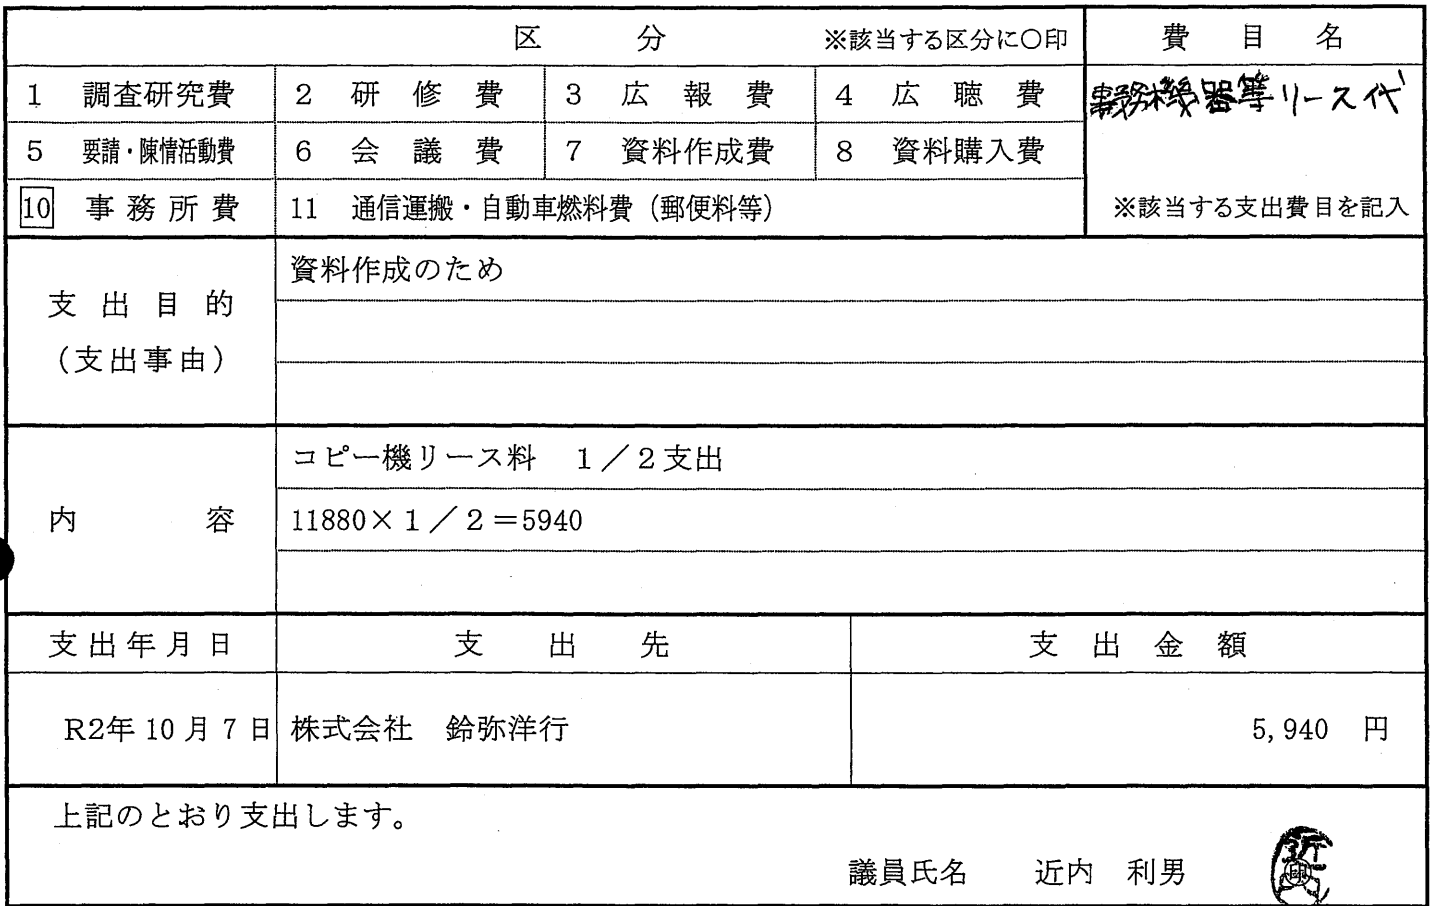 区 分 ※該当する区分に〇印 費 目 名
1 調査研究費 2 研 修 費 3 広 報 費 4 広 聴 費 事務機器等リース代
5 要請・陳情活動費 6 会 議 費 7 資料作成費 8 資料購入費
10 事 務 所 費 11 通信運搬・自動車燃料費（郵便料等） ※該当する支出費目を記入
資料作成のため
支 出 目 的
（支出事由）
コピー機リース料 1／2支出
内 容 11880×1／2＝5940
支 出 年 月 日 支 出 先 支 出 金 額
R2年 10 月 7 日 株式会社 鈴弥洋行 5,940 円
上記のとおり支出します。
議員氏名 近内 利男 ㊞
近内